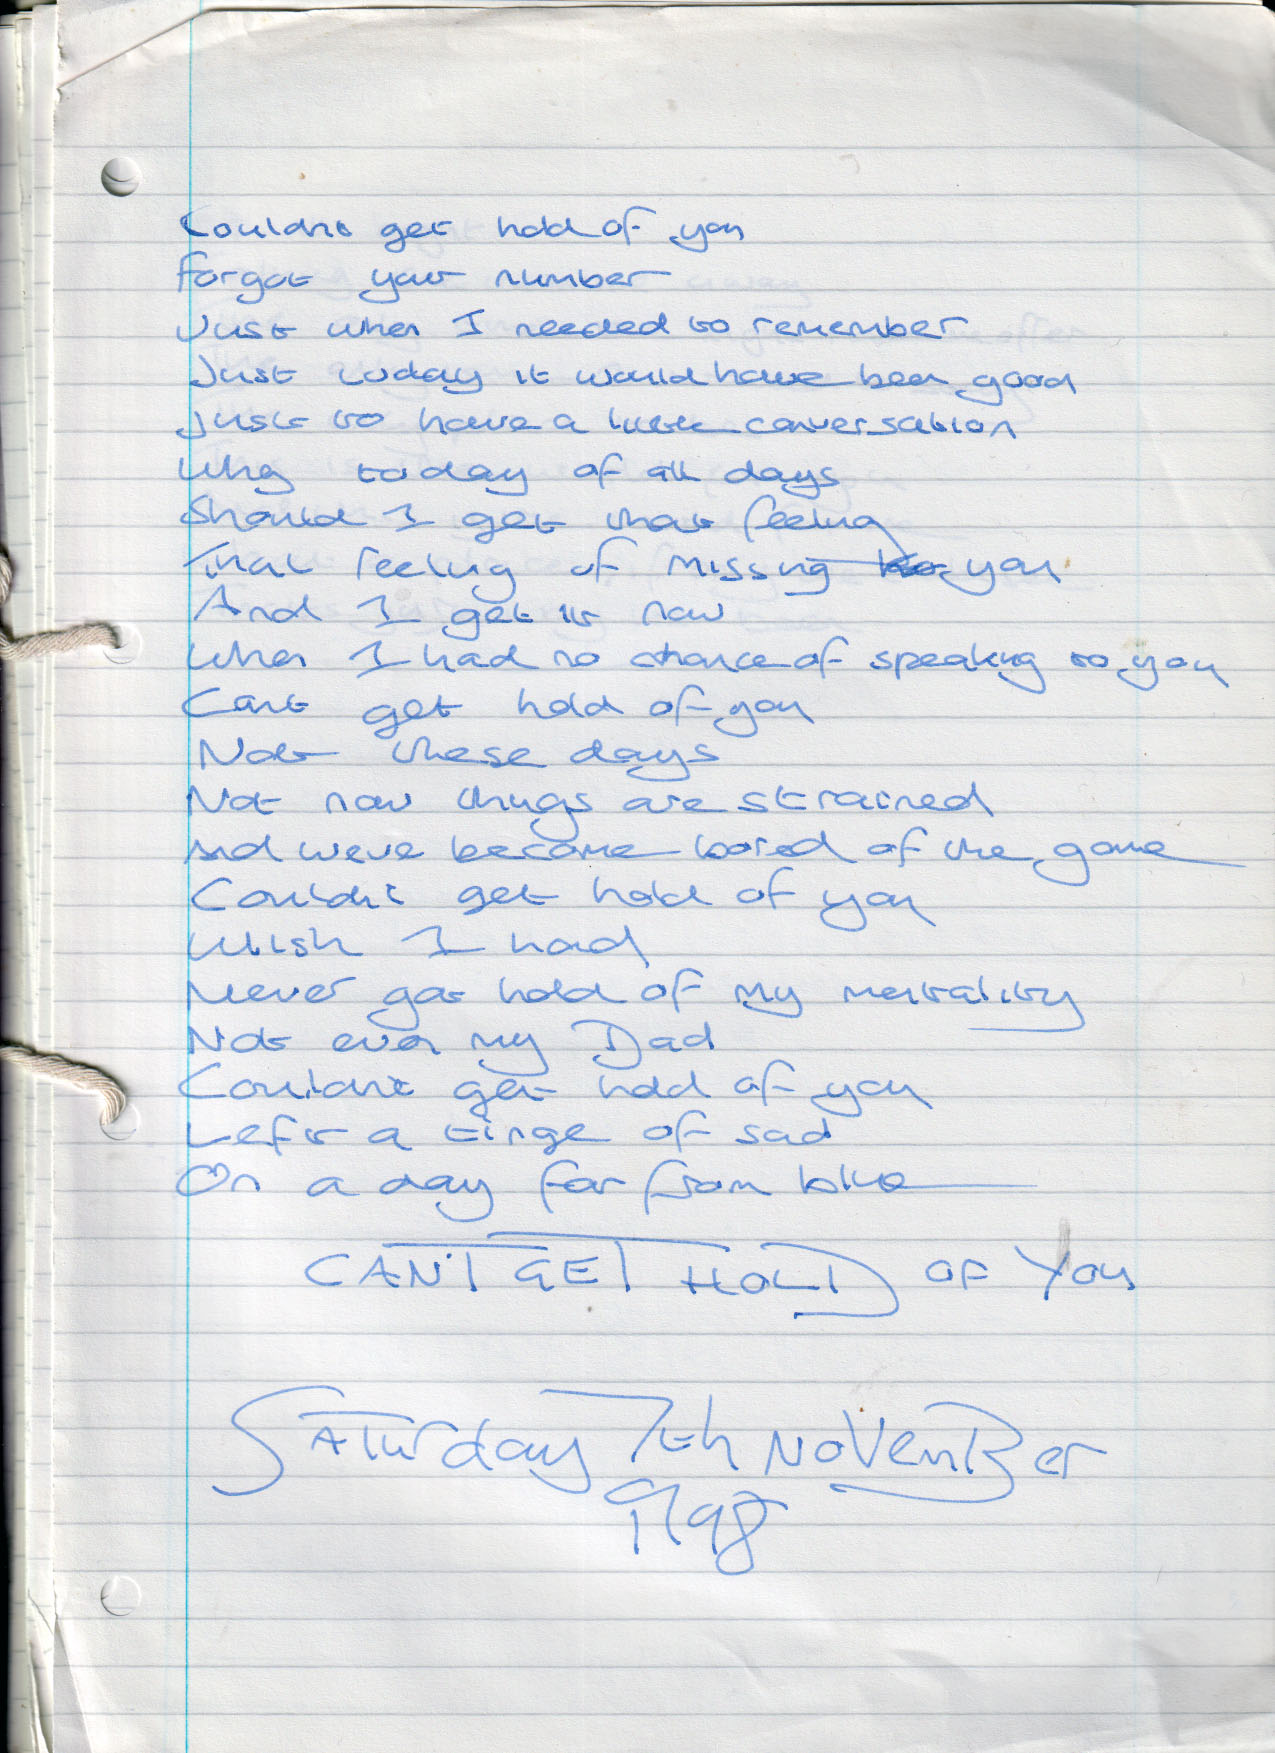 Couldnt get hold of you
Forgot your number
Just when I needed to remember
Just today it would have been good
Just to have a little conversation
Why today of all days
Should I get that feeling
That feeling of missing you
And I get it now
When I had no chance of speaking to you
Cant get hold of you
Not these days
Not now things are strained
And weve become bored of the game
Couldnt get hold of you
Wish I had
Never got hold of my mentality
Not even my Dad
Couldnt get hold of you
Left a tinge of sad
On a day far from blue
CAN'T GET HOLD OF YOU
Saturday 7th November
1998